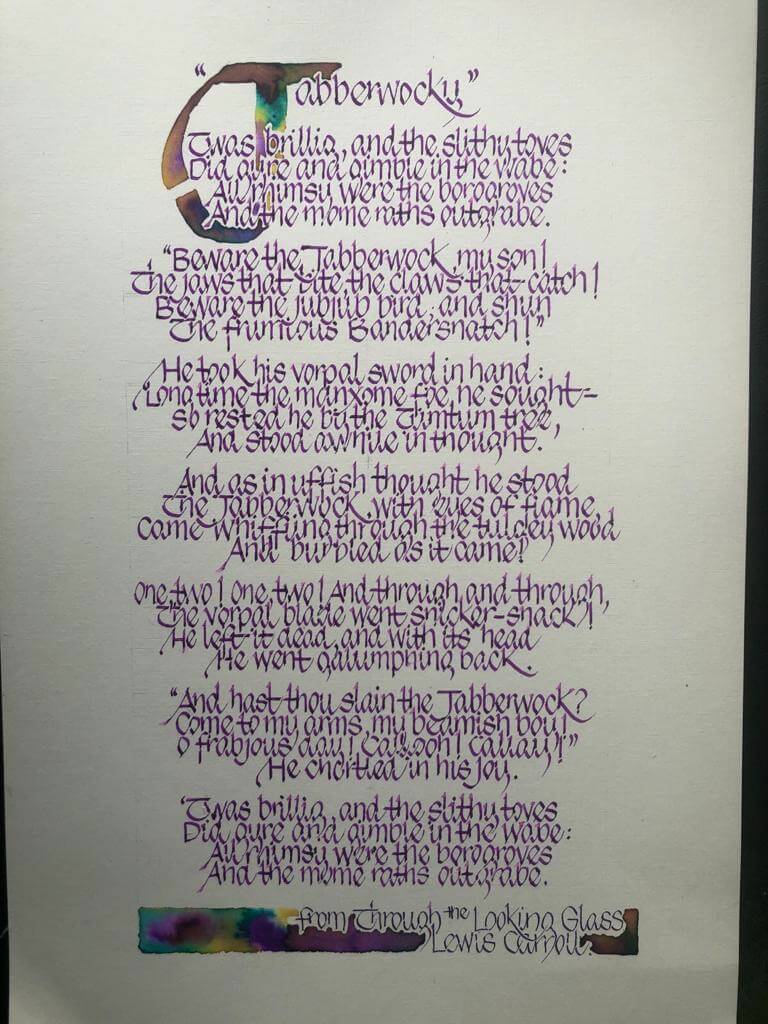 "Jabberwocky"
'Twas brillig, and the slithy toves
Did gyre and gimble in the wabe:
All mimsy were the borogroves
And the mome raths outgrabe.
"Beware the Jabberwock, my son!
The jaws that bite, the claws that catch!
Beware the jubjub bird, and shun
The frumious Bandersnatch!"
He took his vorpal sword in hand:
Long time the manxome foe he sought-
So rested he by the Tumtum tree,
And stood awhile in thought.
And as in uffish thought he stood
The Jabberwock, with eyes of flame,
Came whiffling through the tulgey wood
And burbled as it came!
One, two! One, two! And through, and through,
The vorpal blade went snicker-snack!
He left it dead, and with its head
He went galumphing back.
"And hast thou slain the Jabberwock?
Come to my arms, my beamish boy!
O frabjous day! Callooh! Callay!"
He chortled in his joy.
'Twas brillig, and the slithy toves
Did gyre and gimble in the wabe:
All mimsy were the borogroves
And the mome raths outgrabe.
from Through the Looking Glass
Lewis Carroll.